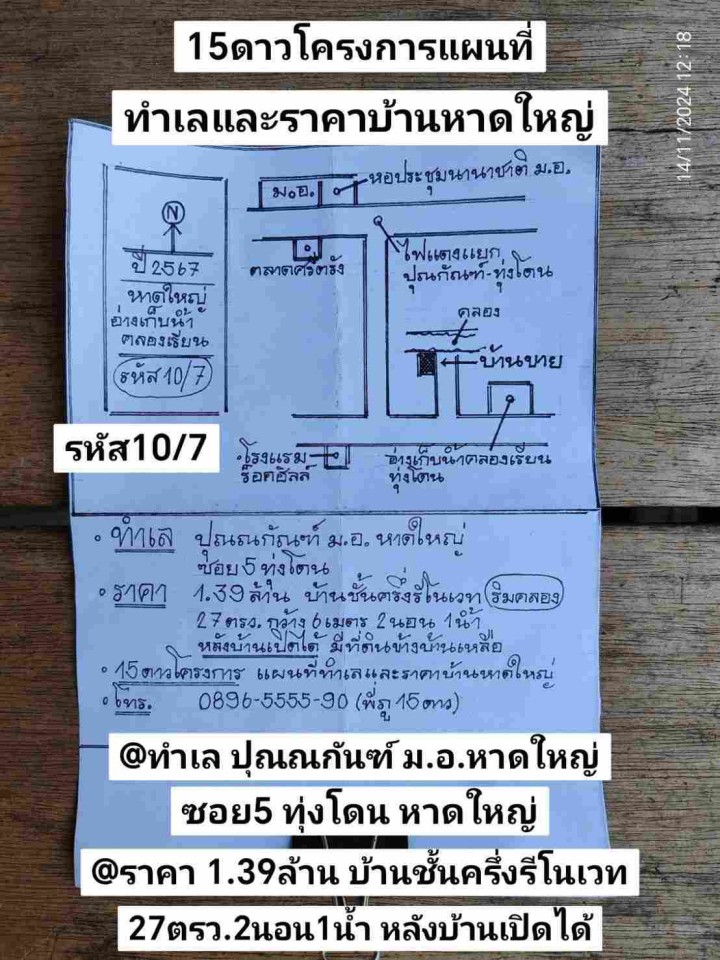 15ดาวโครงการแผนที่
ทำเลและราคาบ้านหาดใหญ่
14/11/2024 12:18
N
ปี 2567
หาดใหญ่
อ่างเก็บน้ำ
คลองเรียน
รหัส 10/7
ม.อ.
หอประชุมนานาชาติ ม.อ.
ตลาดศรีตรัง
ไฟแดงแยก
ปุณกัณฑ์-ทุ่งโดน
คลอง
บ้านขาย
รหัส10/7
โรงแรม
ร็อคฮิลล์
อ่างเก็บน้ำคลองเรียน
ทุ่งโดน
• ทำเล ปุณณกัณฑ์ ม.อ. หาดใหญ่
ซอย 5 ทุ่งโดน
• ราคา 1.39 ล้าน บ้านชั้นครึ่งรีโนเวท ริมคลอง
27 ตรว. กว้าง 6 เมตร 2 นอน 1 น้ำ
หลังบ้านเปิดได้ มีที่ดินข้างบ้านเหลือ
• 15ดาวโครงการ แผนที่ทำเลและราคาบ้านหาดใหญ่
• โทร. 0896-5555-90 (พี่ภู 15 ดาว)
@ทำเล ปุณณกันฑ์ ม.อ.หาดใหญ่
ซอย5 ทุ่งโดน หาดใหญ่
@ราคา 1.39ล้าน บ้านชั้นครึ่งรีโนเวท
27ตรว.2นอน1น้ำ หลังบ้านเปิดได้